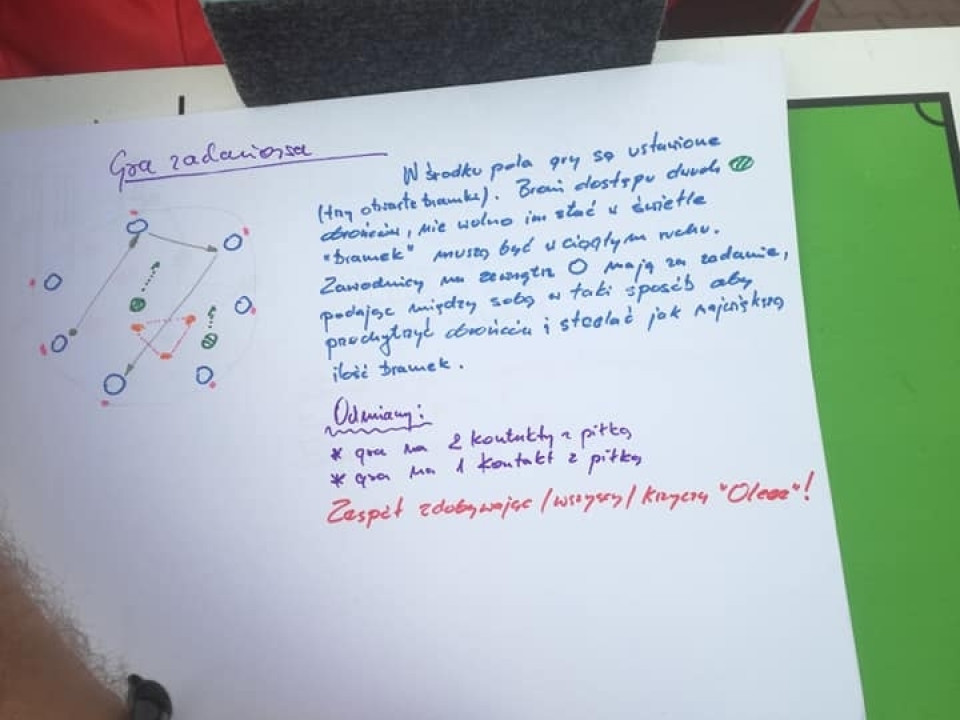 Gra zadaniowa
W środku pola gry są ustawione
(trzy otwarte bramki). Broni dostępu dwóch
obrońców, nie wolno im stać w świetle
"bramek" muszą być w ciągłym ruchu.
Zawodnicy na zewnątrz O mają za zadanie,
podając między sobą w taki sposób aby
przechytrzyć obrońców i strzelać jak największą
ilość bramek.
Odmiany:
* gra na 2 kontakty z piłką
* gra na 1 kontakt z piłką
Zespół zdobywając /wszyscy/ krzyczą !